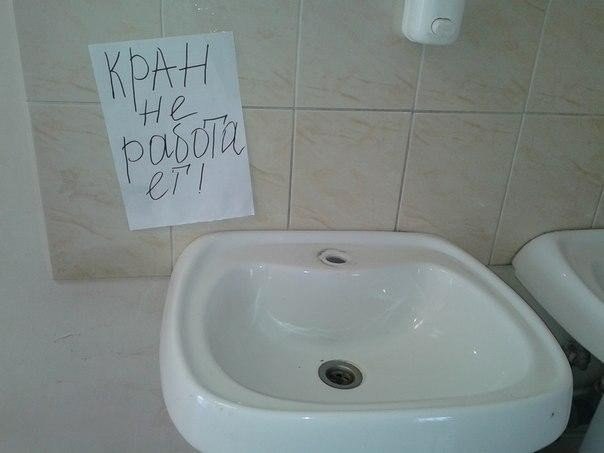 КРАН
не
работа
ет!